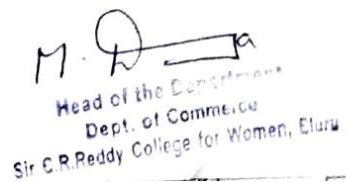 M. D
Head of the Department
Dept. of Commerce
Sir C.R.Reddy College for Women, Eluru